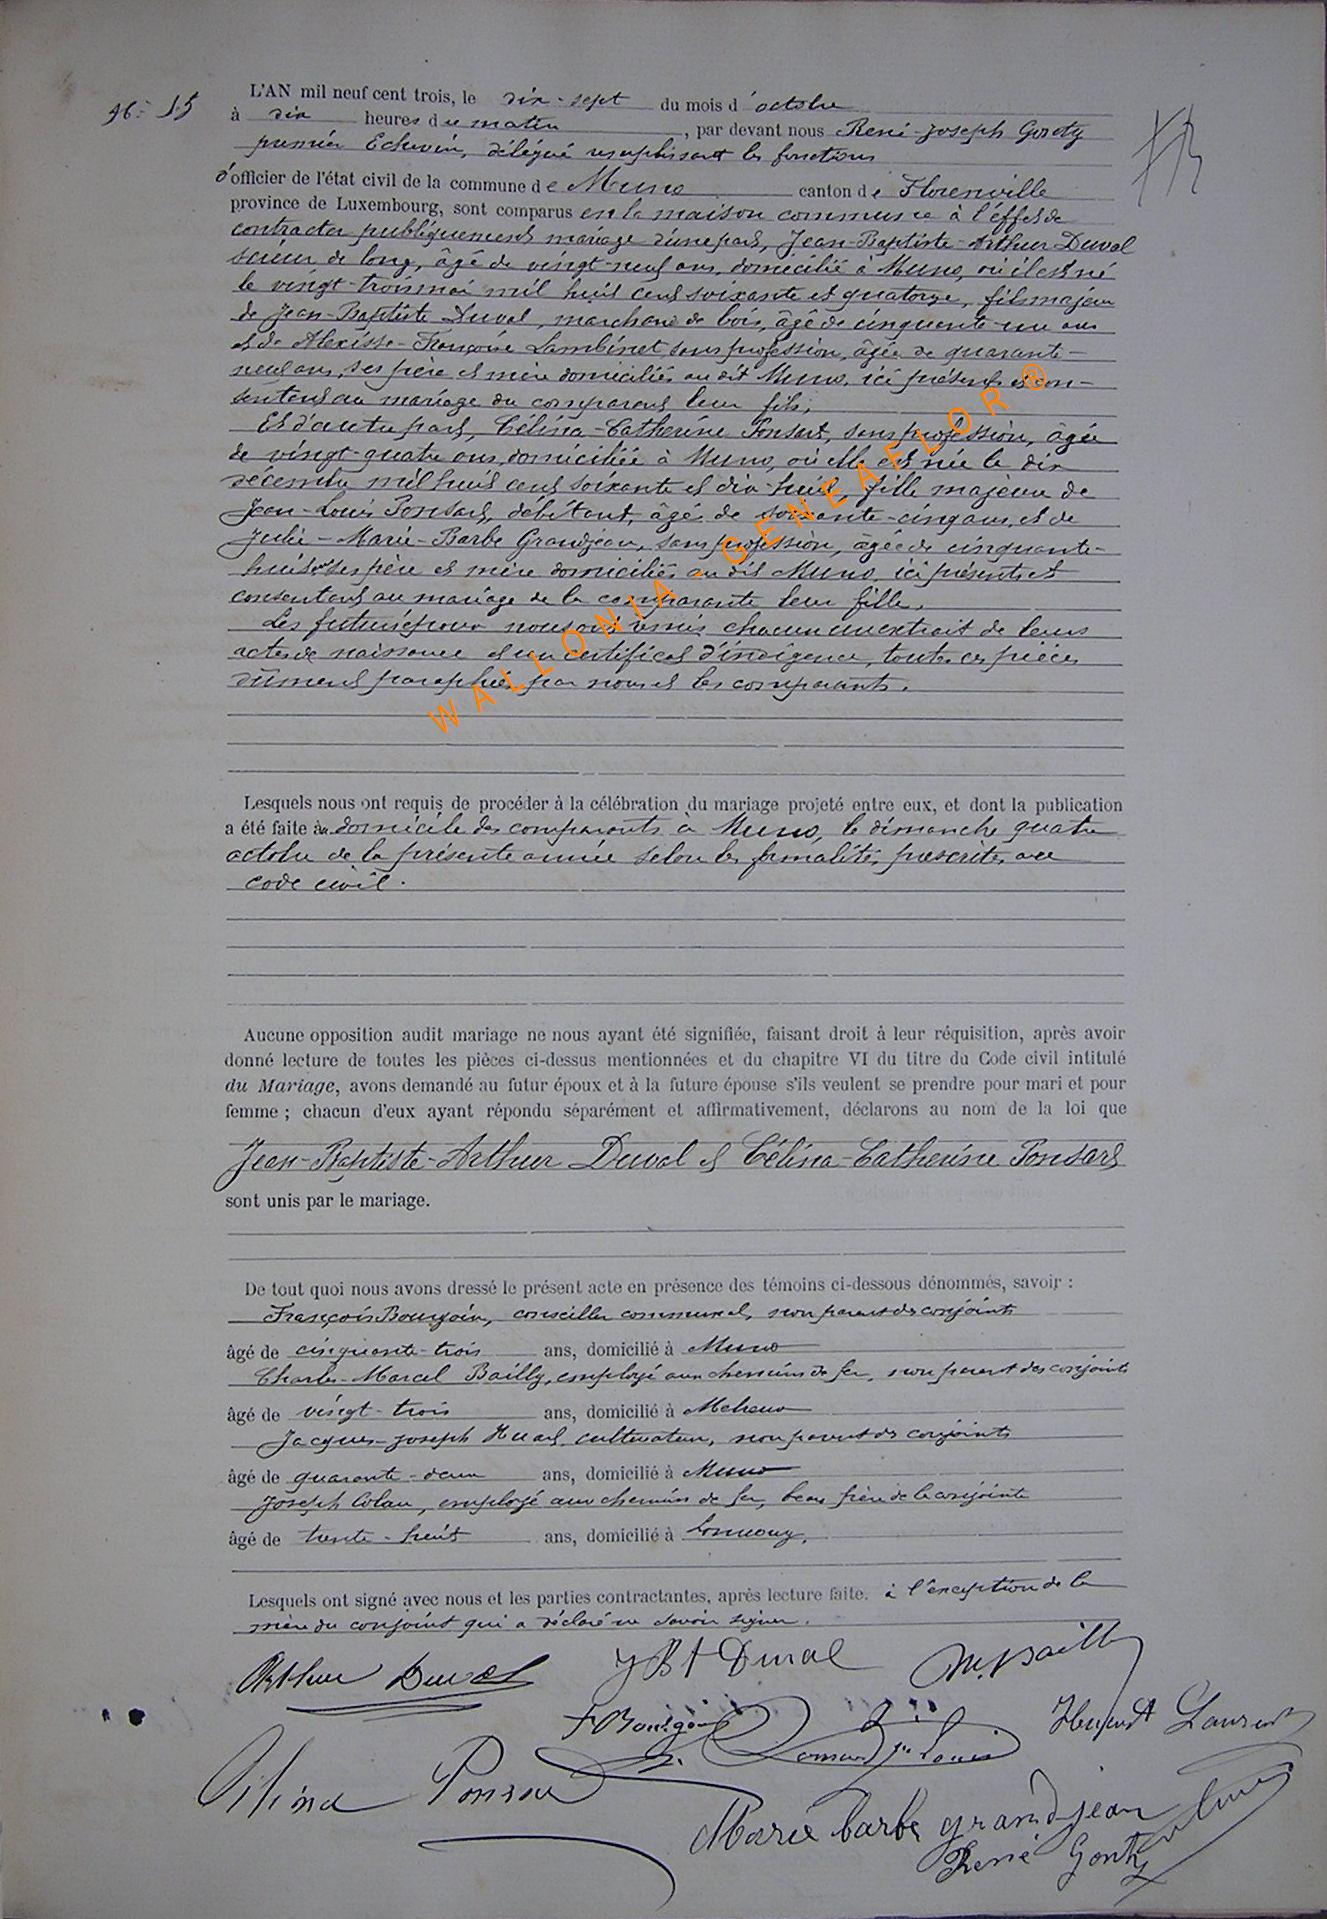 L'AN mil neuf cent trois, le dix-sept du mois d'octobre
à dix heures du matin, par devant nous René-Joseph
premier Echevin, délégué remplissant les fonctions
d'officier de l'état civil de la commune de Muno canton de Florenville
province de Luxembourg, sont comparus en la maison commune à l'effet de
contracter publiquement mariage d'une part, Jean-Baptiste-Arthur Duval
scieur de long, âgé de vingt-neuf ans, domicilié à Muno, où il est né
le vingt-trois mai mil huit cent soixante et quatorze, fils majeur
de Jean-Baptiste Duval, marchand de bois, âgé de cinquante-un ans
et de Alexisse-Françoise Lambinet sans profession, âgée de quarante-
neuf ans, ses père et mère domiciliés au dit Muno, ici présents et con-
sentant au mariage du comparant leur fils,
Et d'autre part, Célina-Catherine Ponsart, sans profession, âgée
de vingt-quatre ans, domiciliée à Muno, où elle est née le dix
décembre mil huit cent soixante et dix-huit, fille majeure de
Jean-Louis Ponsart, débitant, âgé de soixante-cinq ans, et de
Julie-Marie-Barbe Grandjean, sans profession, âgée de cinquante-
huit ans ses père et mère domiciliés au dit Muno, ici présents et
consentant au mariage de la comparante leur fille.
Les futurs époux nous ont remis chacun un extrait de leurs
actes de naissance et un certificat d'indigence, toutes ces pièces
dûment paraphées par nous et les comparants.
WALLONIA - GENEAFLOR ®
Lesquels nous ont requis de procéder à la célébration du mariage projeté entre eux, et dont la publication
a été faite au domicile des comparants à Muno, le dimanche quatre
octobre de la présente année selon les formalités prescrites au
code civil.
Aucune opposition audit mariage ne nous ayant été signifiée, faisant droit à leur réquisition, après avoir
donné lecture de toutes les pièces ci-dessus mentionnées et du chapitre VI du titre du Code civil intitulé
du Mariage, avons demandé au futur époux et à la future épouse s'ils veulent se prendre pour mari et pour
femme ; chacun d'eux ayant répondu séparément et affirmativement, déclarons au nom de la loi que
Jean-Baptiste-Arthur Duval et Célina-Catherine Ponsart
sont unis par le mariage.
De tout quoi nous avons dressé le présent acte en présence des témoins ci-dessous dénommés, savoir :
François Bourgoin, conseiller communal, non parent des conjoints
âgé de cinquante-trois ans, domicilié à Muno
Charles-Marcel Bailly, employé aux chemins de fer, non parent des conjoints
âgé de vingt-trois ans, domicilié à
Jacques-Joseph cultivateur, non parent des conjoints
âgé de quarante-deux ans, domicilié à Muno
Joseph employé aux chemins de fer, beau frère de la conjointe
âgé de trente-huit ans, domicilié à
Lesquels ont signé avec nous et les parties contractantes, après lecture faite. à l'exception de la
mère du conjoint qui a déclaré ne savoir signer.
Arthur Duval J Bt Duval M. Bailly
F Bourgoin Ponsart Jn Louis Laurent
Célina Ponsar
Marie barbe grandjean
René